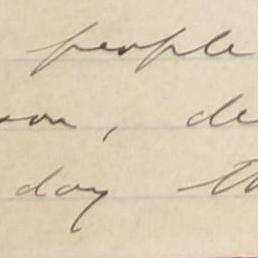 people
son, de
day th